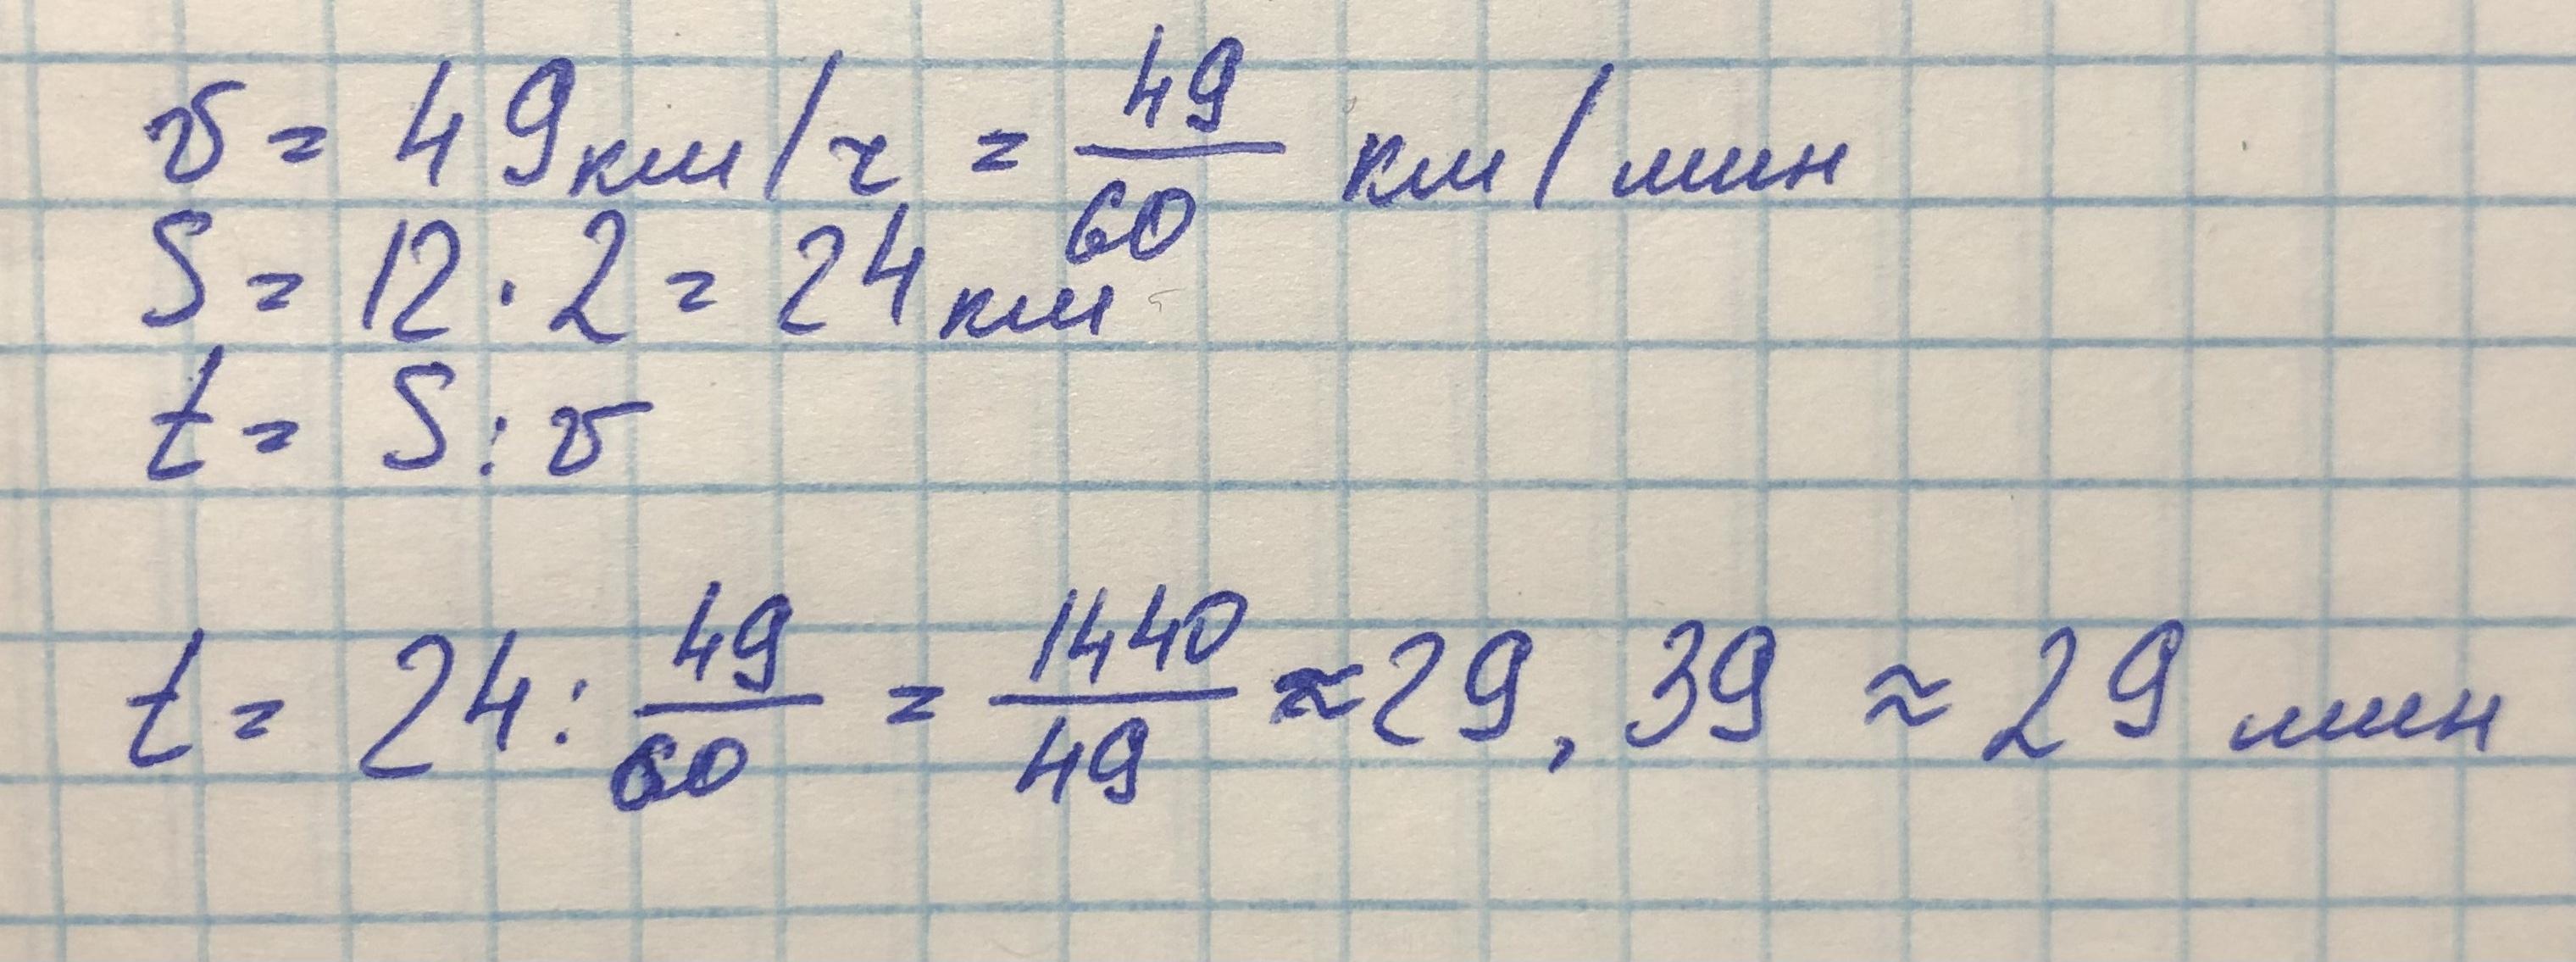 v = 49 км/ч = 49/60 км/мин
S = 12 · 2 = 24 км
t = S : v
t = 24 : 49/60 = 1440/49 ≈ 29,39 ≈ 29 мин